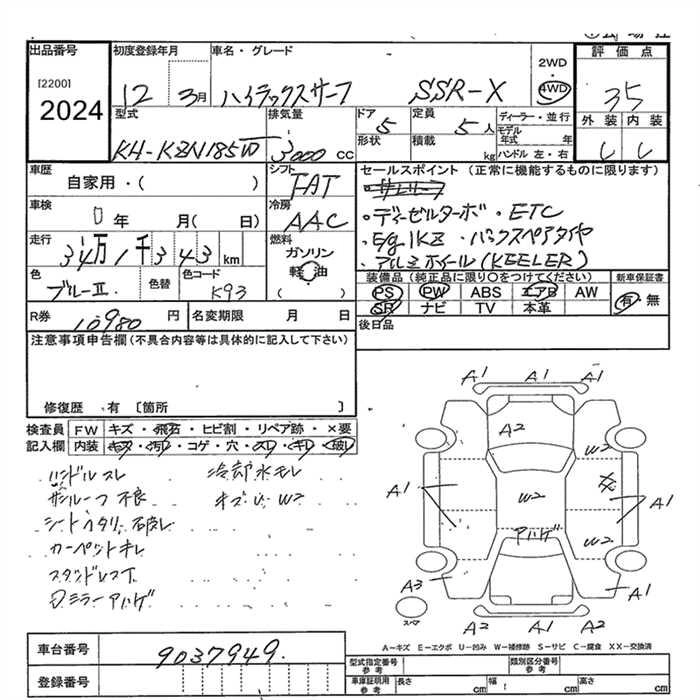 出品番号
[2200]
2024
初度登録年月
12 3月
車名・グレード
ハイラックスサーフ SSR-X
2WD
・
4WD
評価点
3.5
外装 内装
型式
KH-KZN185W
排気量
3000 CC
ドア
5
形状
定員
5人
積載
kg
ディーラー・並行
モデル年式 年
ハンドル 左・右
車歴
自家用・( )
シフト
FAT
車検
0年 月( 日)
冷房
AAC
走行
34万1千343 km
燃料
ガソリン
軽油
( )
色
ブルーII
色替
色コード
K93
セールスポイント(正常に機能するものに限ります)
・ディーゼルターボ・ETC
・E/g 1KZ ・バックスペアタイヤ
・アルミホイール(KEELER)
装備品(純正品に限り○をつけてください)
PS PW ABS エアB AW
SR ナビ TV 本革
新車保証書
有・無
R券
10980 円
名変期限 月 日
後日品
注意事項申告欄(不具合内容等は具体的に記入して下さい)
修復歴・有〔箇所 〕
検査員 FW キズ・飛石・ヒビ割・リペア跡・×要
記入欄 内装 キズ・汚レ・コゲ・穴・スレ・キレ・破レ
ハンドルスレ 冷却水モレ
サンルーフ不良 キズ U W2
シートヘタリ、破レ
カーペントキレ
ステンドレス下
Dミラーアハゲ
A1 A1 A1
A2
W2
A1
W2
XX
A1
W2
アハゲ
A3
A1
スペア
A2 A1 A2
A-キズ E-エクボ U-凹み W-補修跡 S-サビ C-腐食 XX-交換済
車台番号
9037949.
登録番号
型式指定番号 参考
類別区分番号 参考
車庫証明用 参考
長さ cm 幅 cm 高さ cm